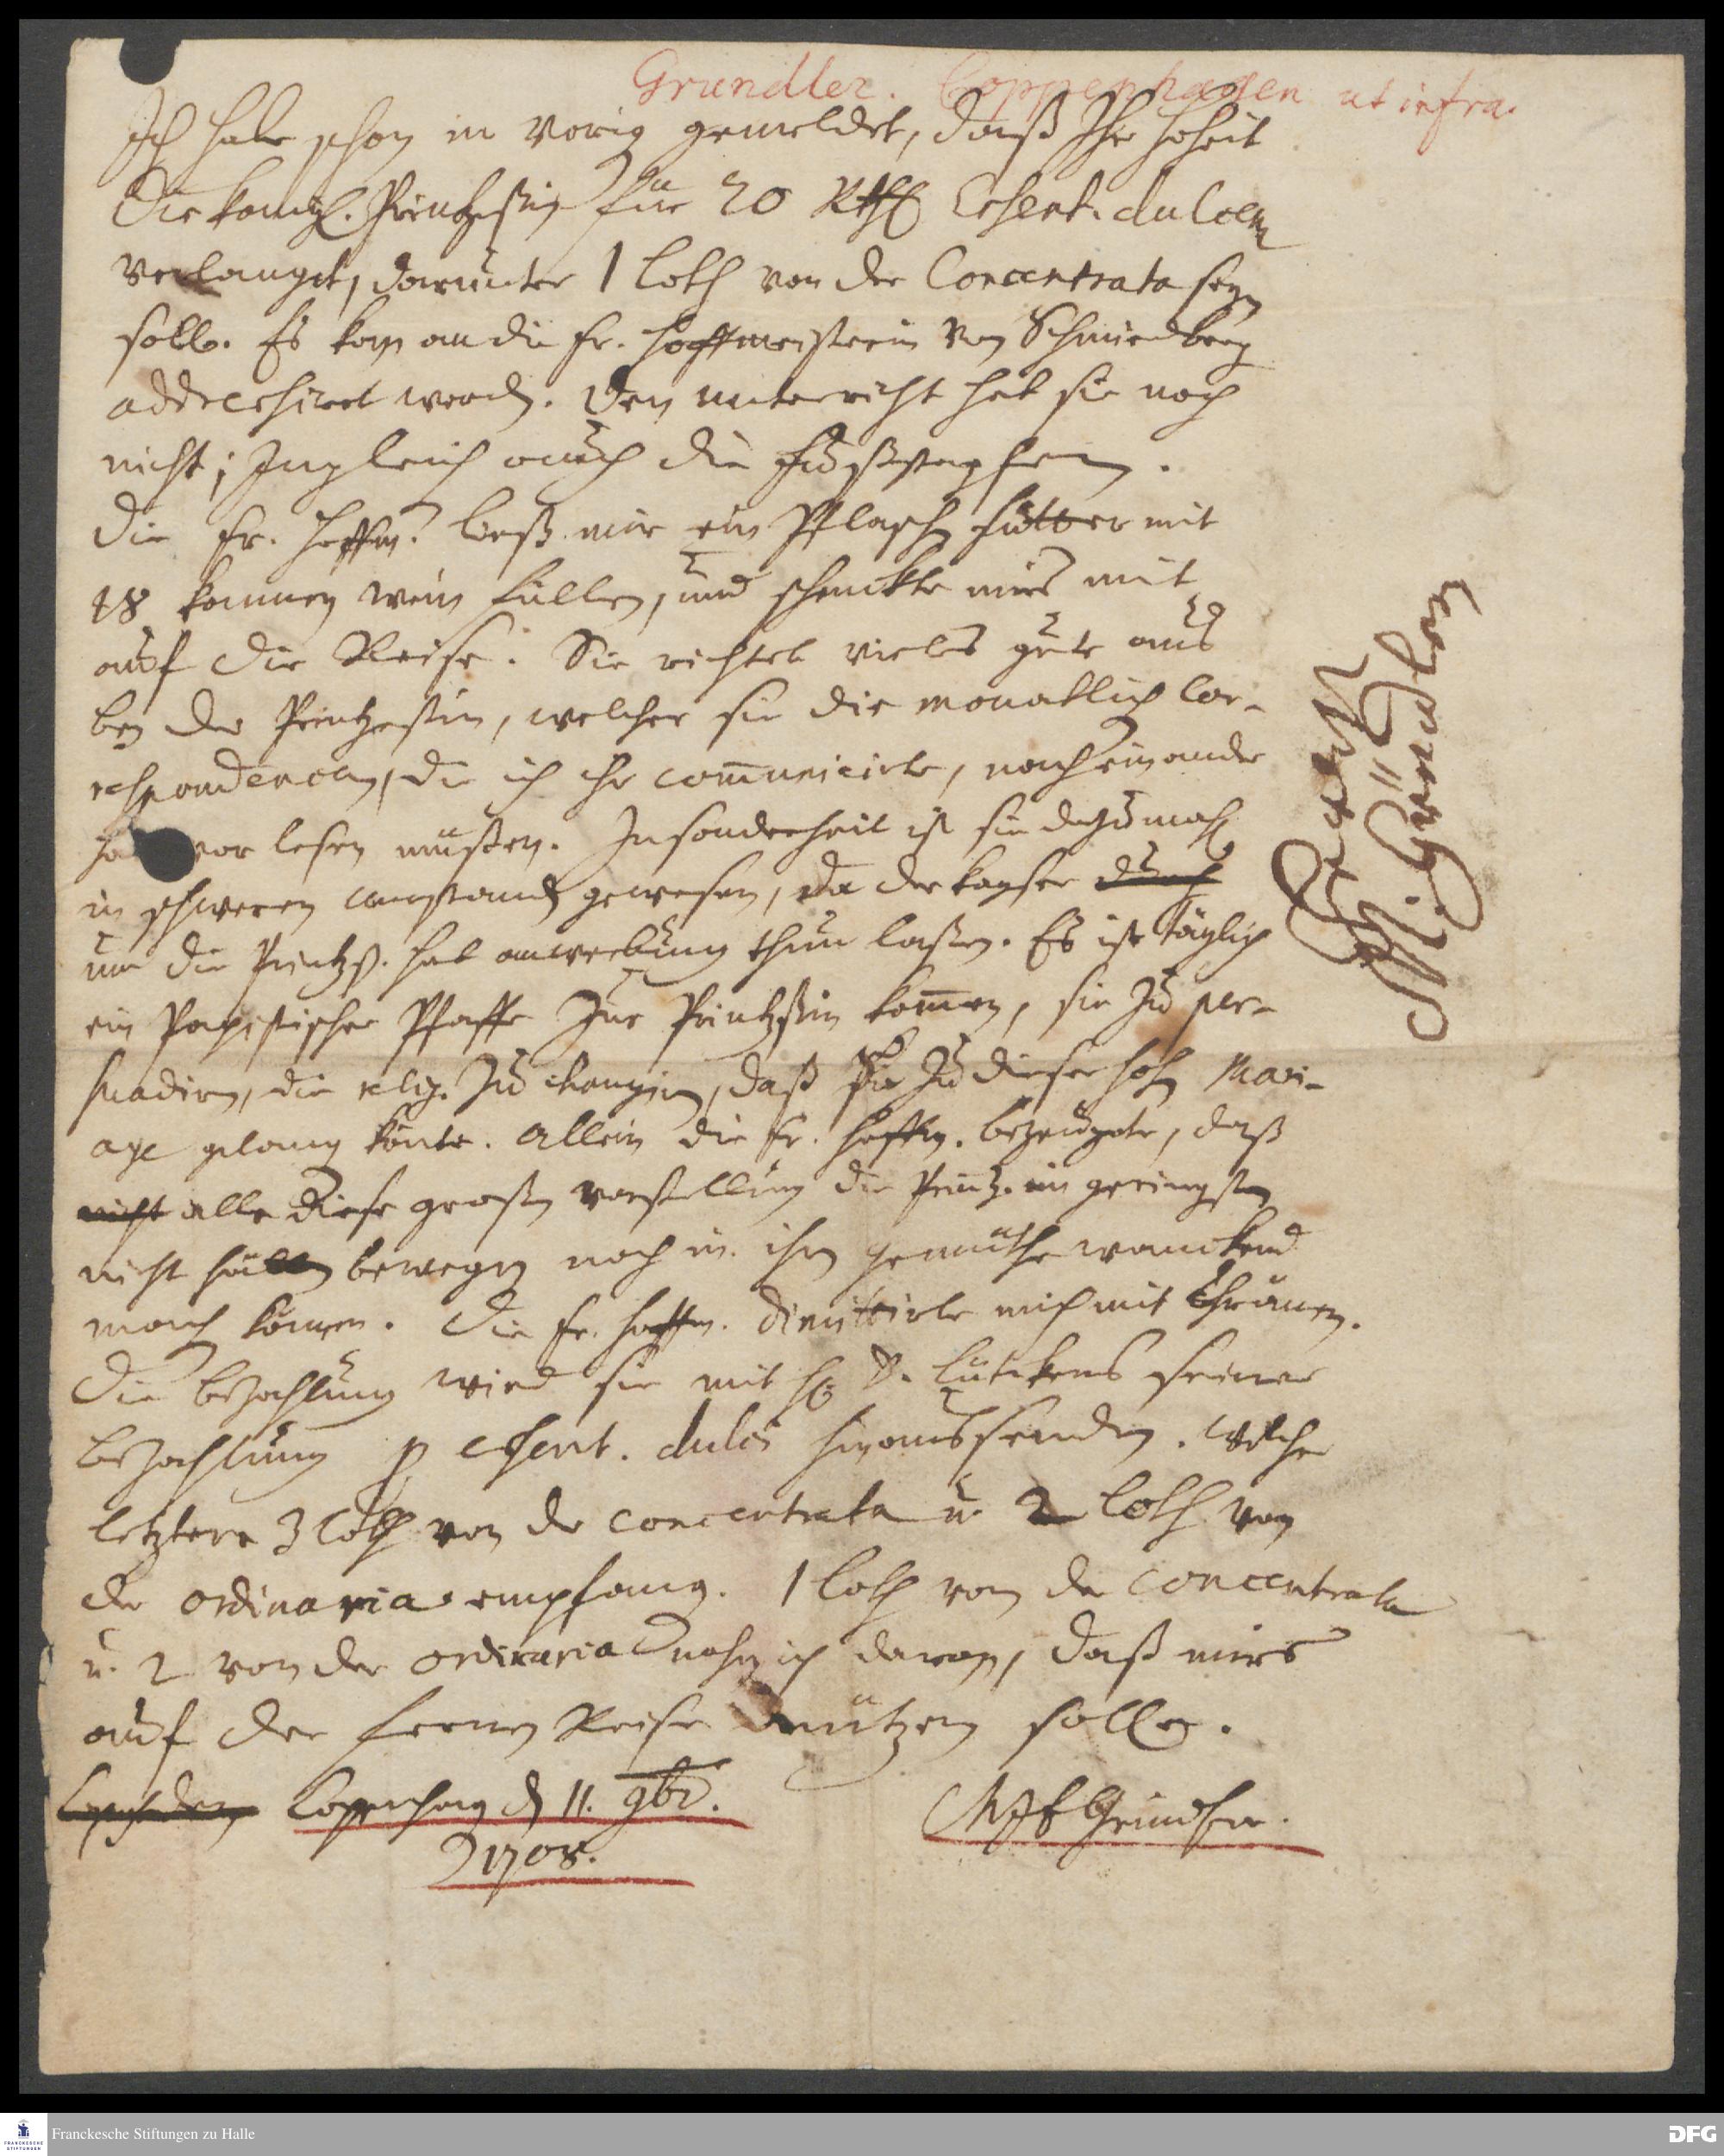 Grundler. Coppenhagen ut infra.
Ich habe schon in vorig gemeldet, daß Ihr Hoheit
die königl. Printzeßin für 20 Rthl Essent. dulcem
verlanget, darunter 1 Loth von der Concentrata seyn
soll. Es kan an die Fr. Hoffmeisterin von Schmiedberg
addressiret werden. Den unterricht hat sie noch
nicht; Ingleich auch die Fußstapfen.
Die Fr. Hoffm. ließ mir ein Pflaschen futter mit
18 kannen wein füllen, und schenckte mirs mit
auf die Reise. Sie richtet vieles gute aus
bey der Printzeßin, welcher sie die monatlich Cor-
respondencen, die ich ihr com̄unicirte, nach einander
vor lesen müßen. Insonderheit ist sie dazumahl
in schweren umständ gewesen, da der Kayser durch
um die Printzß. hat anwerbung thun laßen. Es ist täglich
ein Papistischer Pfaffe zur Printzßin kom̄en, sie zu per-
suadiren, die relig. zu changiren, daß sie zu dieser hohen Mari-
age gelangen könte. Allein die Fr. Hoffm. bezeugete, daß
nicht alle diese großen vorstellung die Printz. im geringsten
nicht hätten bewegen noch in ihrem gemüthe wanckend
machen können. Die Fr. Hoffm. dimittirte mich mit Thränen.
Die Bezahlung wird sie mit H. D. Lütkens seiner
Bezahlung p essent. dulcis hinaussenden. Welcher
letztere 3 Loth von der concentrata u. 2 Loth von
der ordinaria empfangen. 1 Loth von der concentrata
u. 2 von der ordinaria nahm ich davon, daß mirs
auf der fernen Reise nützen solle.
Copenhag d 11. 9br.
1708.
Gründler.
M. Gründlern